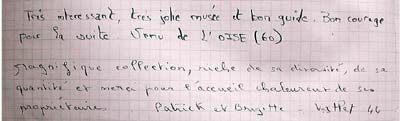 Très intéressant, très jolie musée et bon guide. Bon courage
pour la suite. Venu de L'OISE (60)
magnifique collection, riche de sa diversité, de sa
quantité et merci pour l'accueil chaleureux de son
propriétaire. Patrick et Brigitte - 46